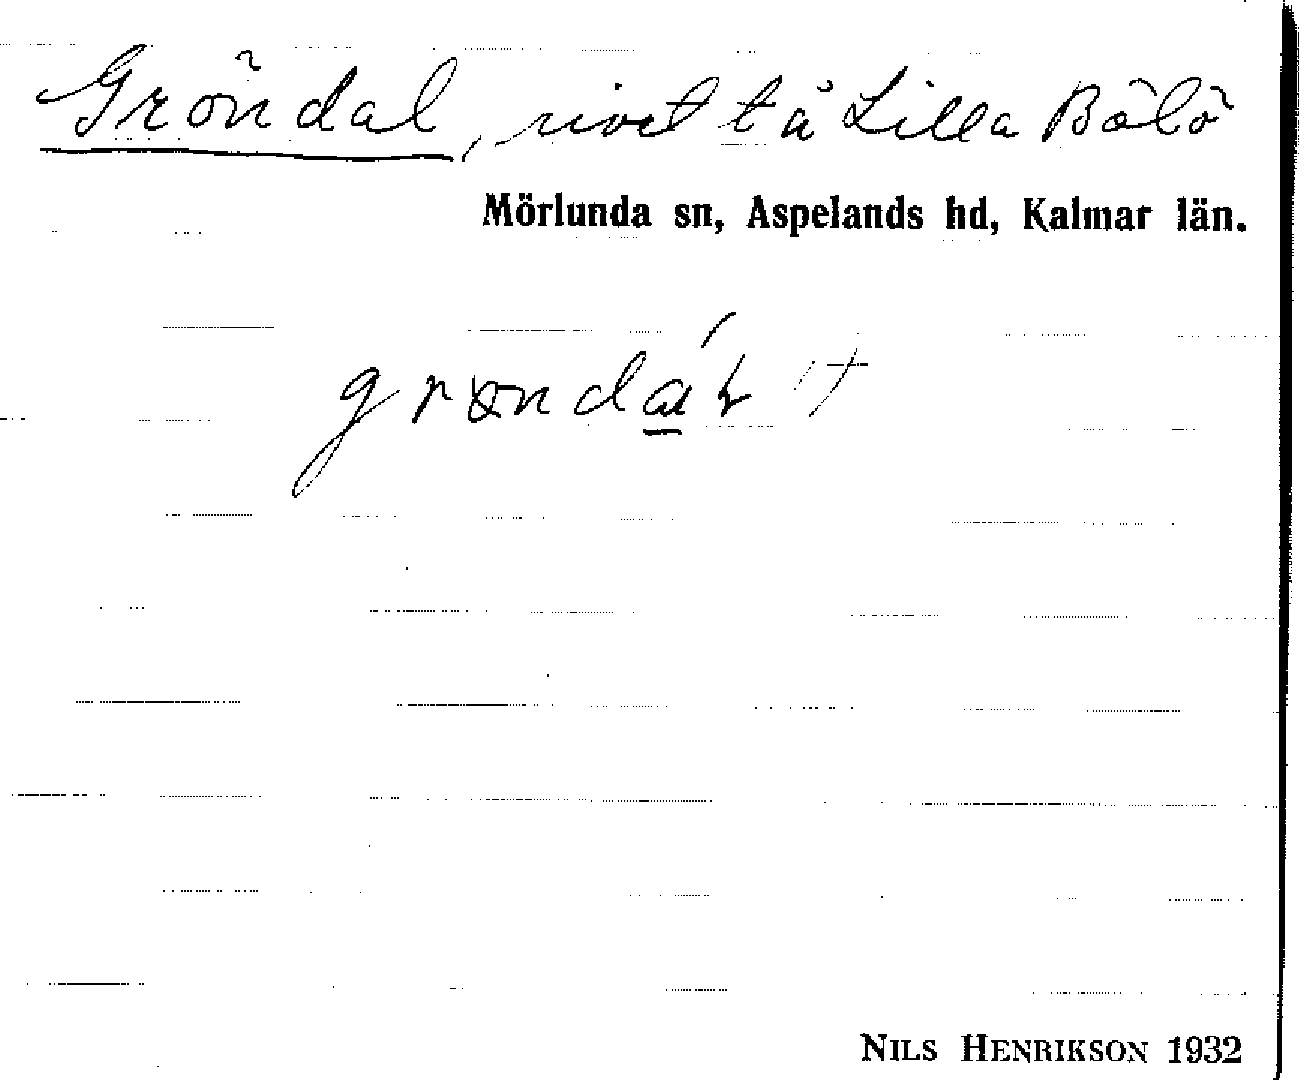 Gröndal, rivet tå Lilla Bölö
Mörlunda sn, Aspelands hd, Kalmar län.
NILS HENRIKSON 1932